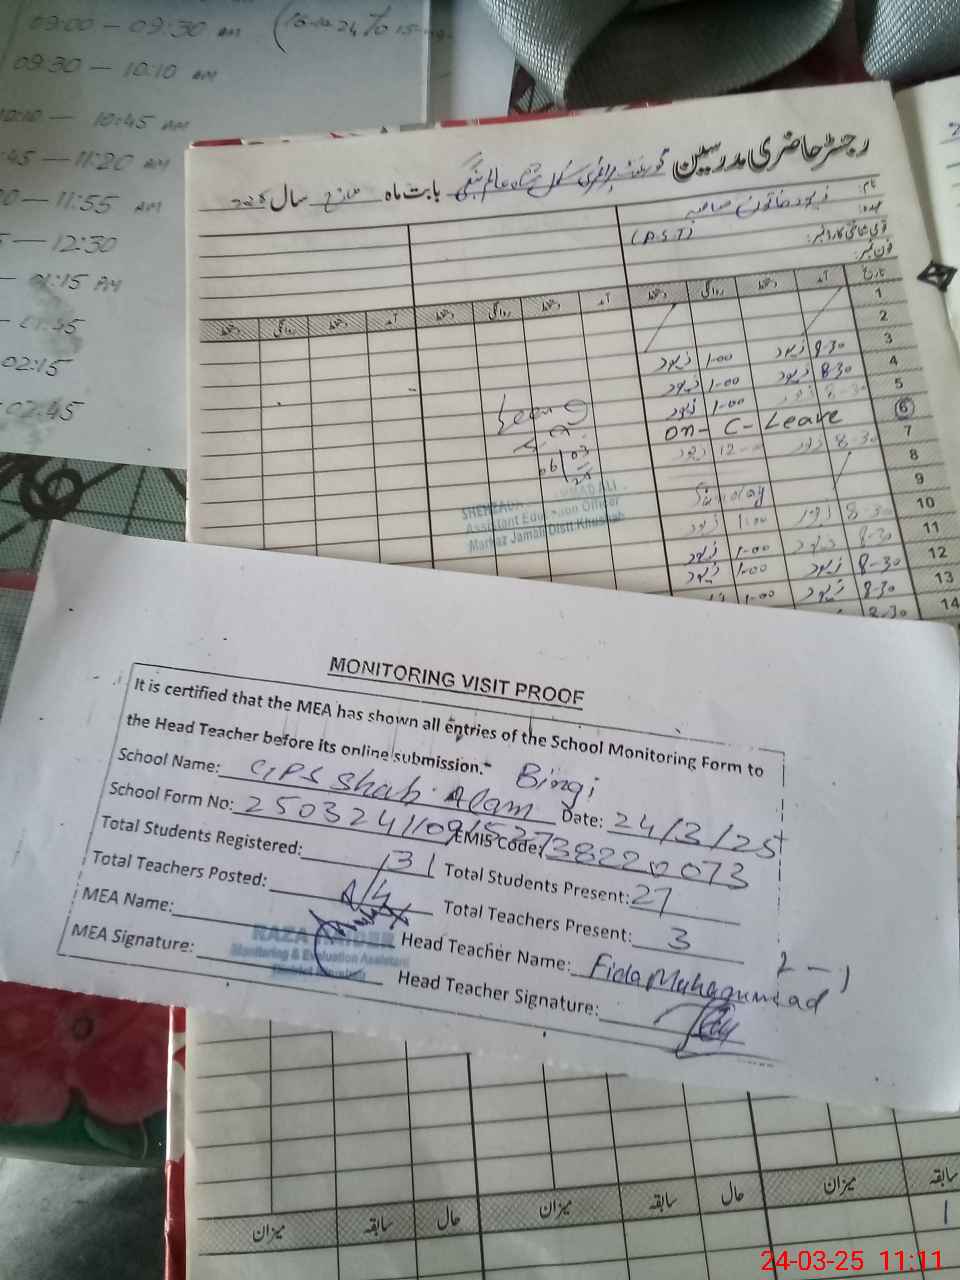 09:00 — 09:30 AM
09:30 — 10:10 AM
10:10 — 10:45 AM
:45 — 11:20 AM
— 11:55 AM
— 12:30
01:15 AM
02:15
02:45
رجسٹر حاضری مدرسین گورنمنٹ پرائمری سکول شاہ عالم بنگی بابت ماہ مارچ سال
نام:
عہدہ:
(P.S.T)
قومی شناختی کارڈ نمبر:
فون نمبر:
تاریخ آمد دستخط روانگی دستخط آمد دستخط روانگی دستخط آمد دستخط روانگی دستخط
1
2
3 8-30 زیور 1-00 زیور
4 8-30 زیور 1-00 زیور
5 8-30 زیور 1-00 زیور
6 on - C - Leave
7 8-30 زیور 12 زیور
8
9 Sunday
10 8-30 زیور 1:00 زیور
11 8-30 زیور 1-00 زیور
12 8-30 زیور 1-00 زیور
13 8-30 زیور 1-00
14 8-30
Seen
06/03
Assistant Education Officer
Markaz Jamali Distt Khushab
MONITORING VISIT PROOF
It is certified that the MEA has shown all entries of the School Monitoring Form to
the Head Teacher before its online submission.
School Name: GPS Shah Alam Bingi Date: 24/3/25
School Form No: EMIS Code: 38220073
Total Students Registered: 31 Total Students Present: 27
Total Teachers Posted: 4 Total Teachers Present: 3
2-1
MEA Name: Head Teacher Name: Fida Muhammad
RAZA HAIDER
Monitoring & Evaluation Assistant
District Khushab
MEA Signature: Head Teacher Signature:
سابقہ میزان حال سابقہ میزان حال سابقہ میزان
1
24-03-25 11:11